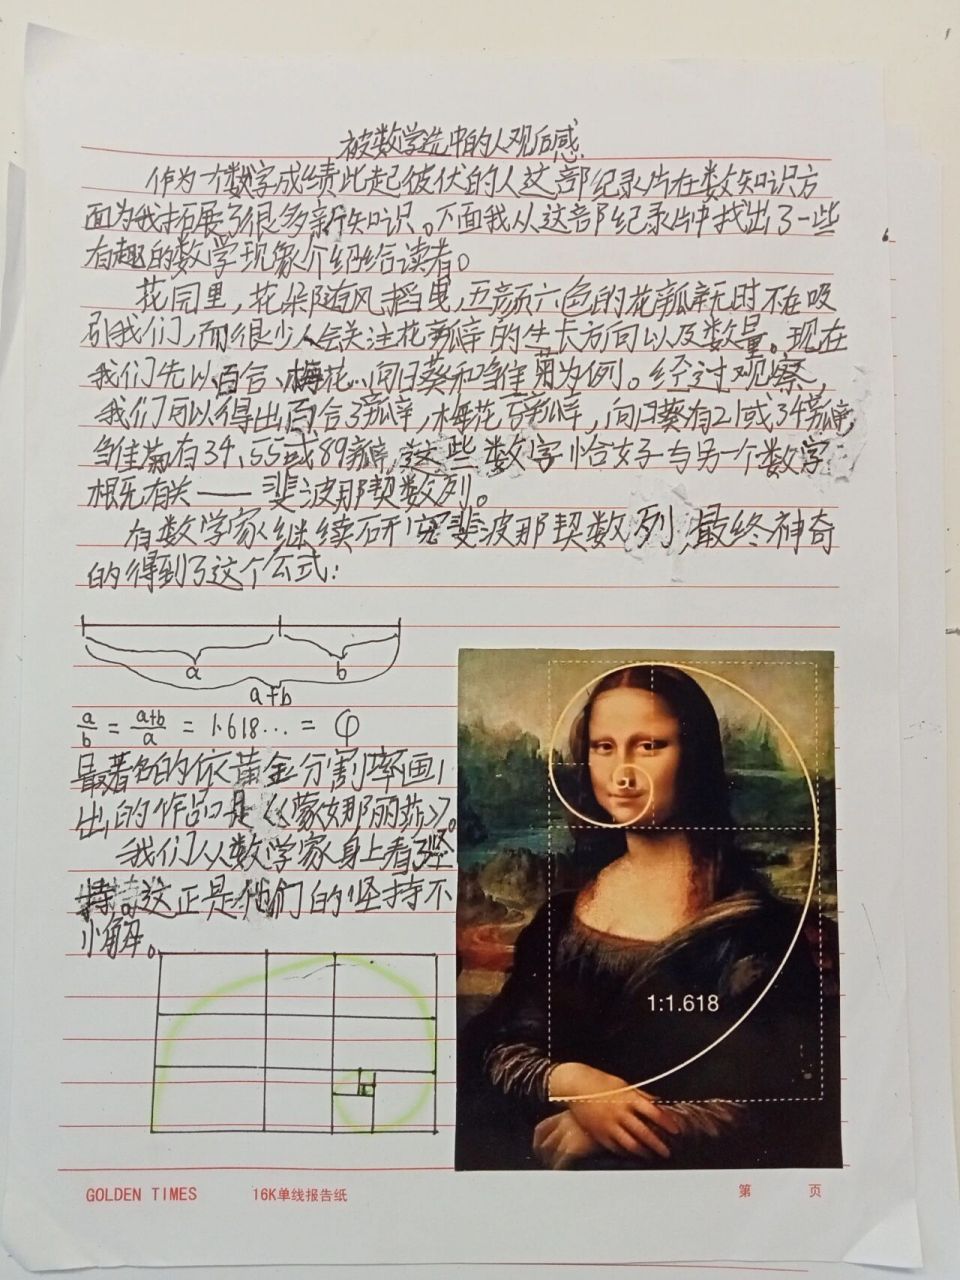 被数学选中的人观后感
作为一个数学成绩此起彼伏的人这部纪录片在数知识方
面为我拓展了很多新知识。下面我从这部纪录片中找出了一些
有趣的数学现象介绍给读者。
花园里，花朵随风摇曳，五颜六色的花瓣无时不在吸
引我们，而很少人会关注花瓣的生长方向以及数量。现在
我们先以百合、梅花、向日葵和雏菊为例。经过观察，
我们可以得出百合3瓣，梅花5瓣，向日葵有21或34瓣，
雏菊有34、55或89瓣，这些数字恰好与另一个数学
概无有关——斐波那契数列。
有数学家继续研究斐波那契数列，最终神奇
的得到了这个公式：
a b
a+b
a/b = a+b/a = 1.618... = φ
最著名的依黄金分割率画
出的作品是《蒙娜丽莎》。
我们从数学家身上看了坚
持。这正是他们的坚持不
小解。
1:1.618
GOLDEN TIMES 16K单线报告纸 第 页